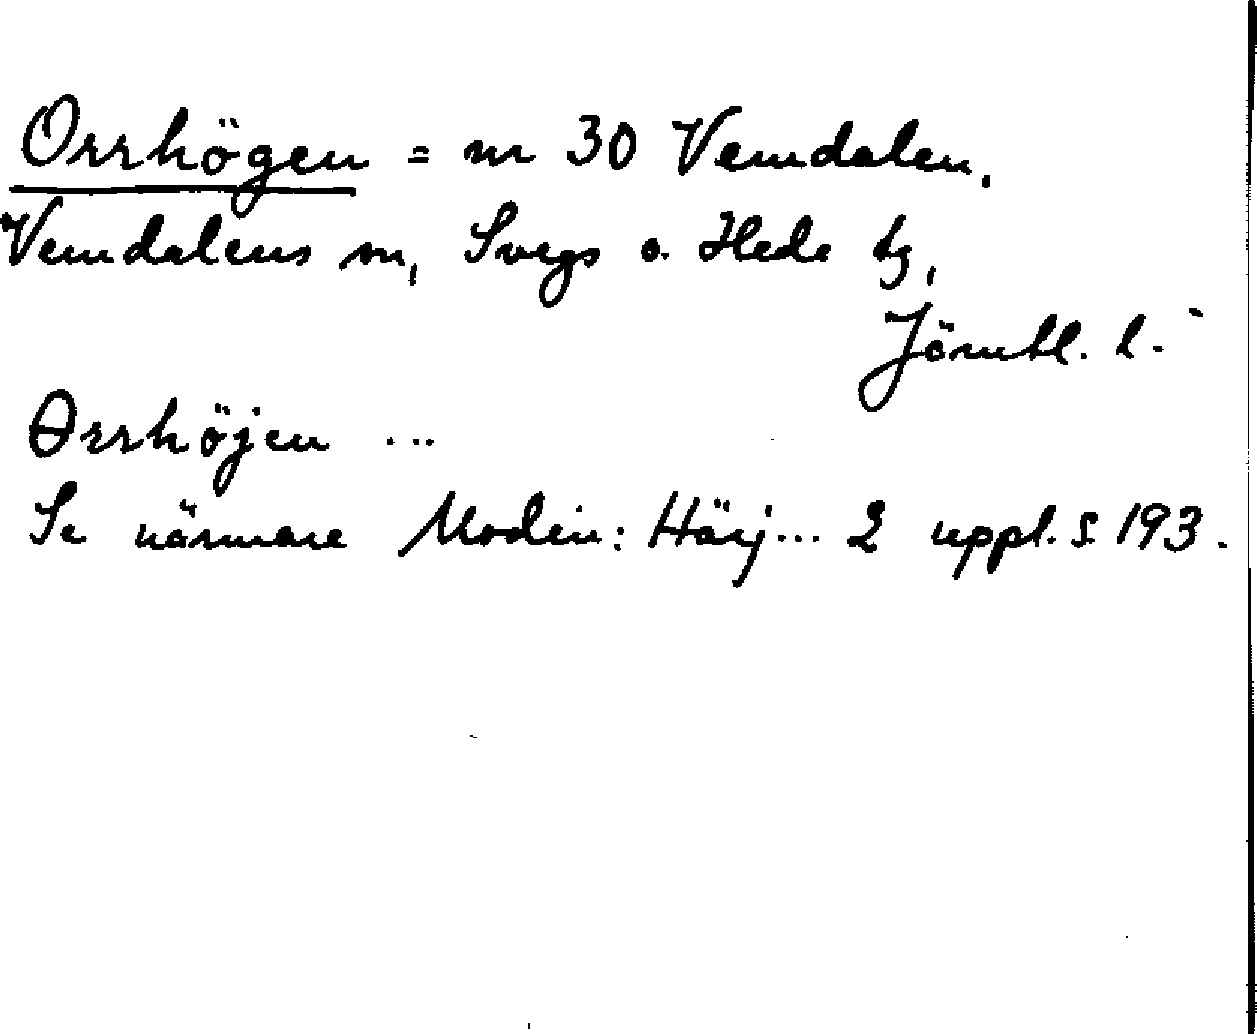 Orrhögen = nr 30 Vemdalen,
Vemdalens sn, Svegs o. Hede tg,
Jämtl. l.
Orrhöjen ...
Se närmare Modin: Härj... 2 uppl. s 193.